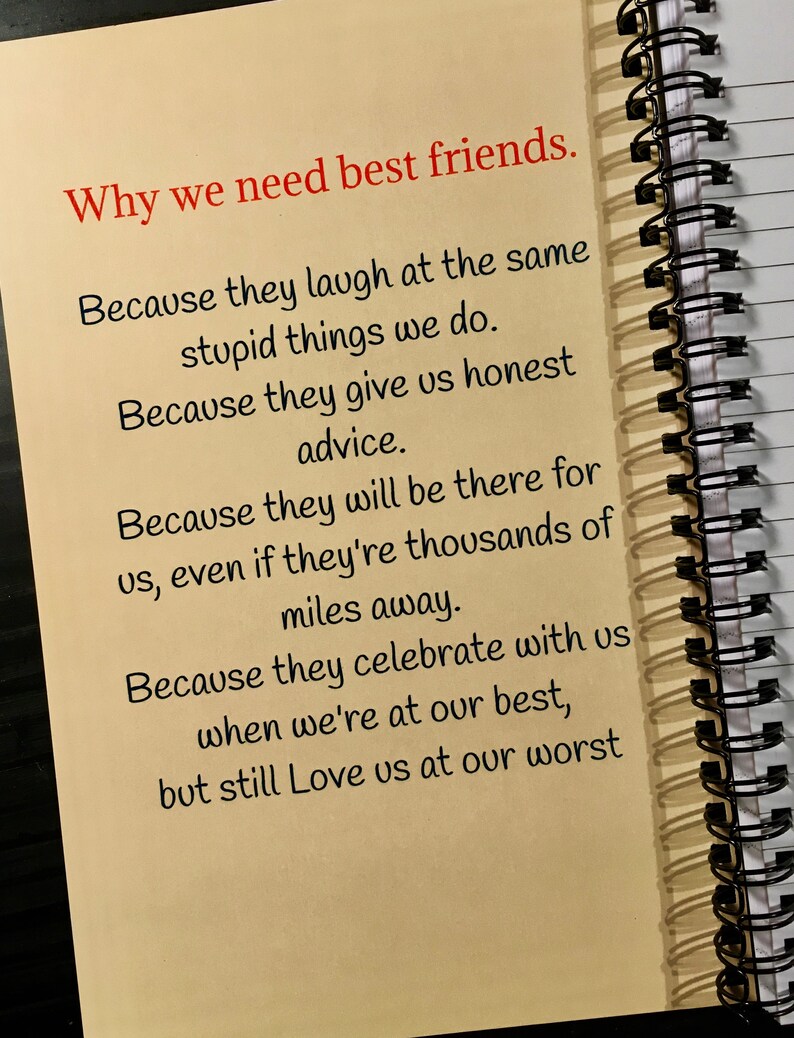 Why we need best friends.
Because they laugh at the same
stupid things we do.
Because they give us honest
advice.
Because they will be there for
us, even if they're thousands of
miles away.
Because they celebrate with us
when we're at our best,
but still Love us at our worst